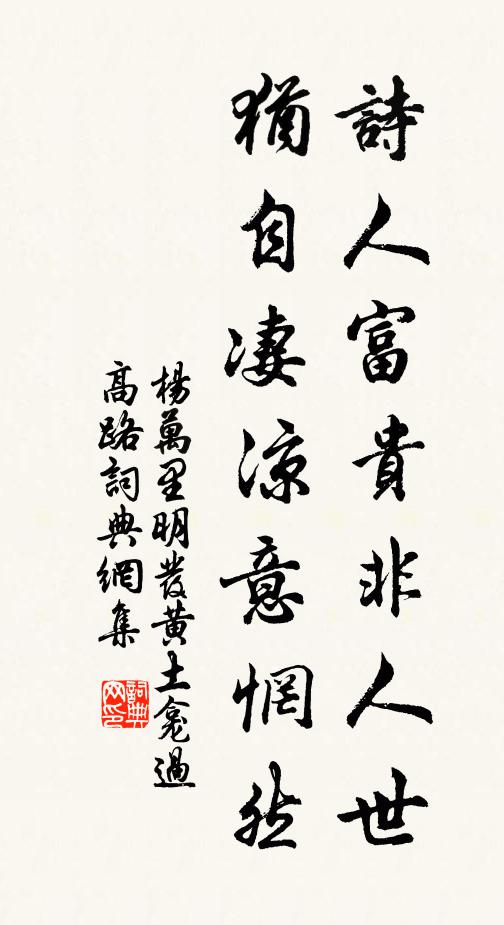 詩人富貴非人世
猶自凄涼意惘然
楊萬里明發黃土龛過
高路詞典網集
詞典
网印